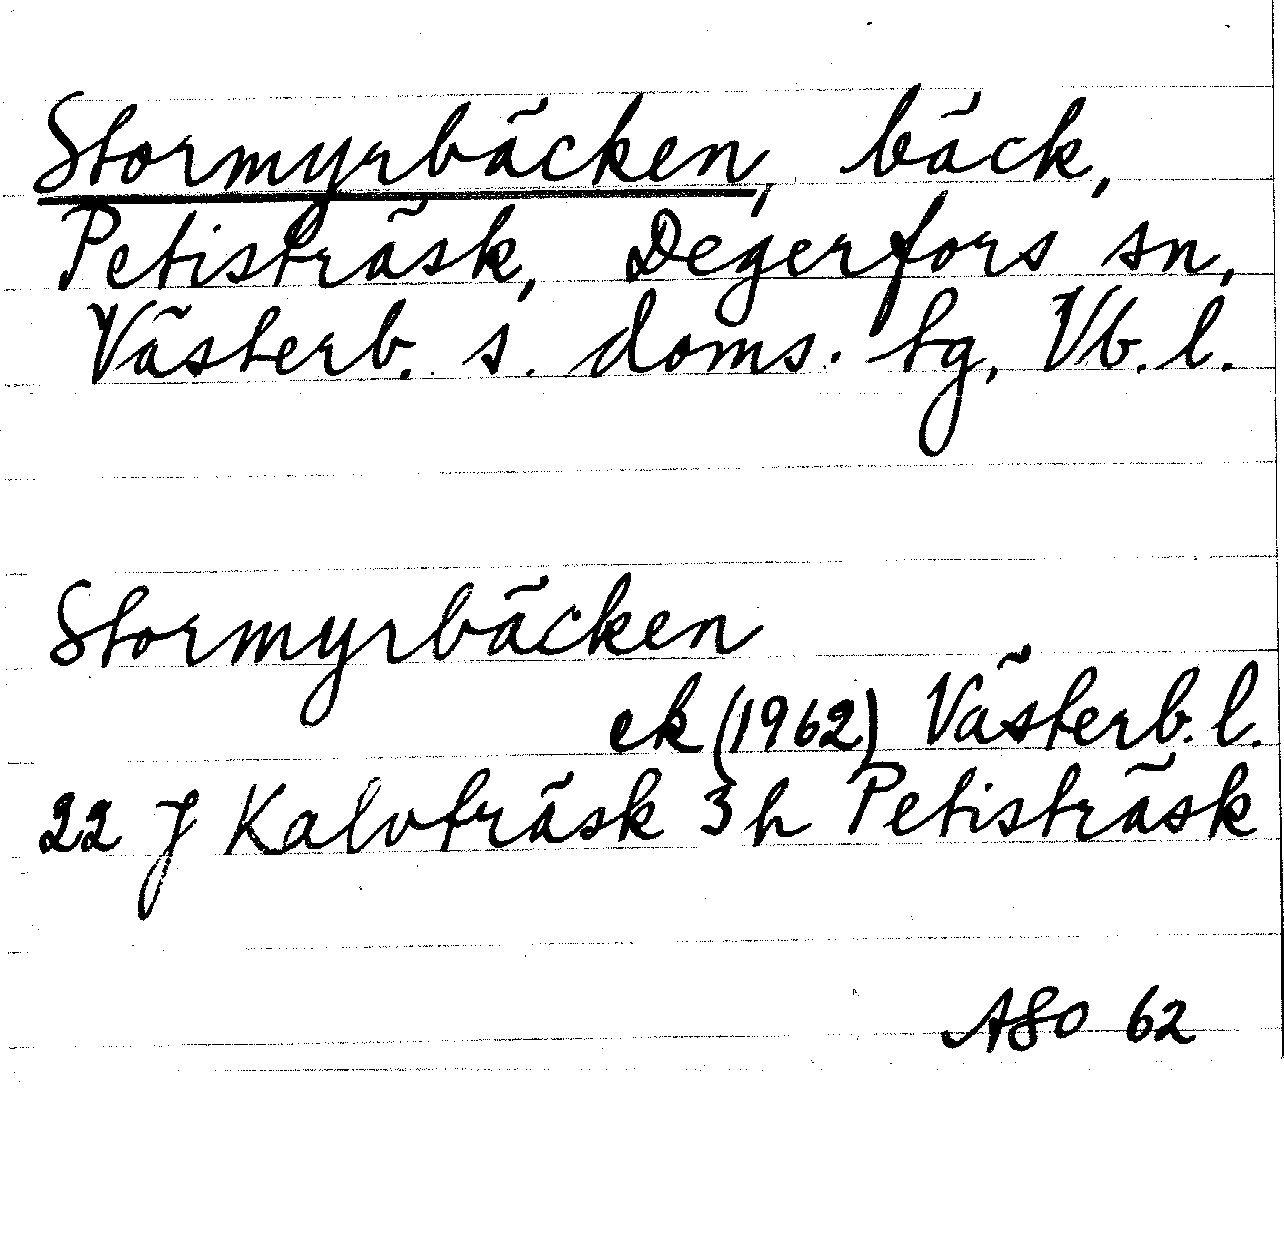 Stormyrbäcken, bäck,
Petisträsk, Degerfors sn,
Västerb. s. doms. tg, Vb. l.
Stormyrbäcken
ek (1962) Västerb. l.
22 J Kalvträsk 3 h Petisträsk
ASO 62